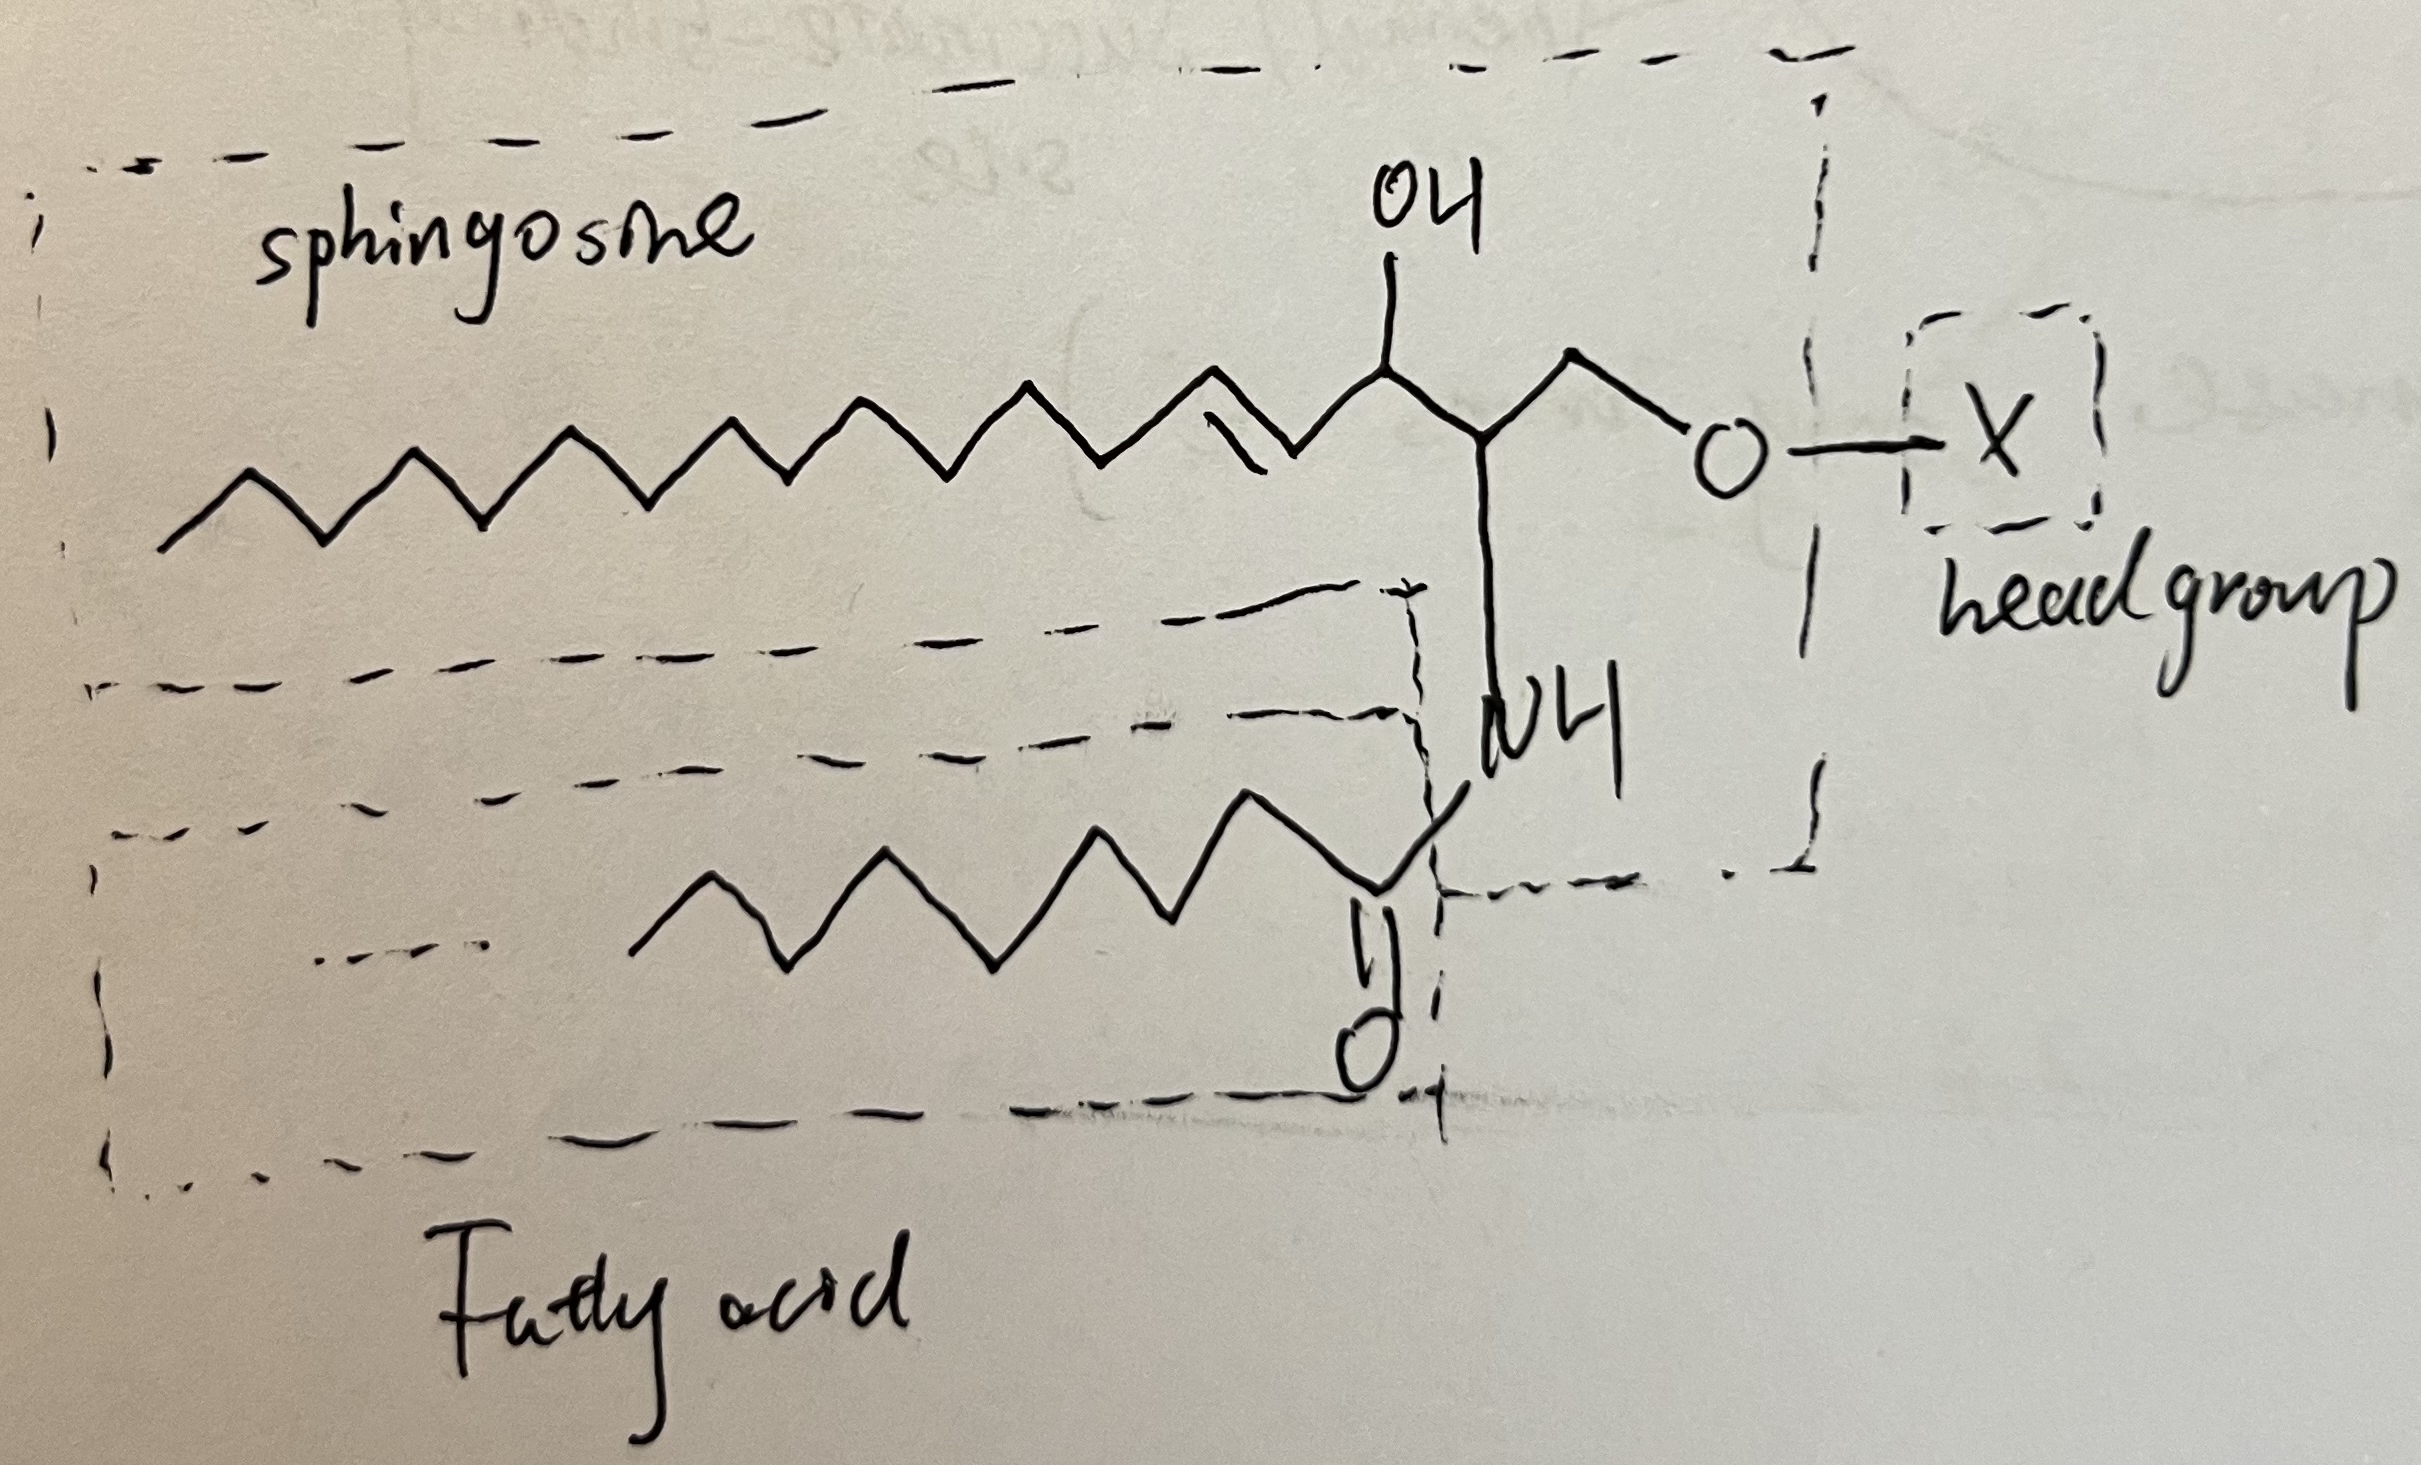 sphingosine
OH
O
X
head group
NH
O
Fatty acid